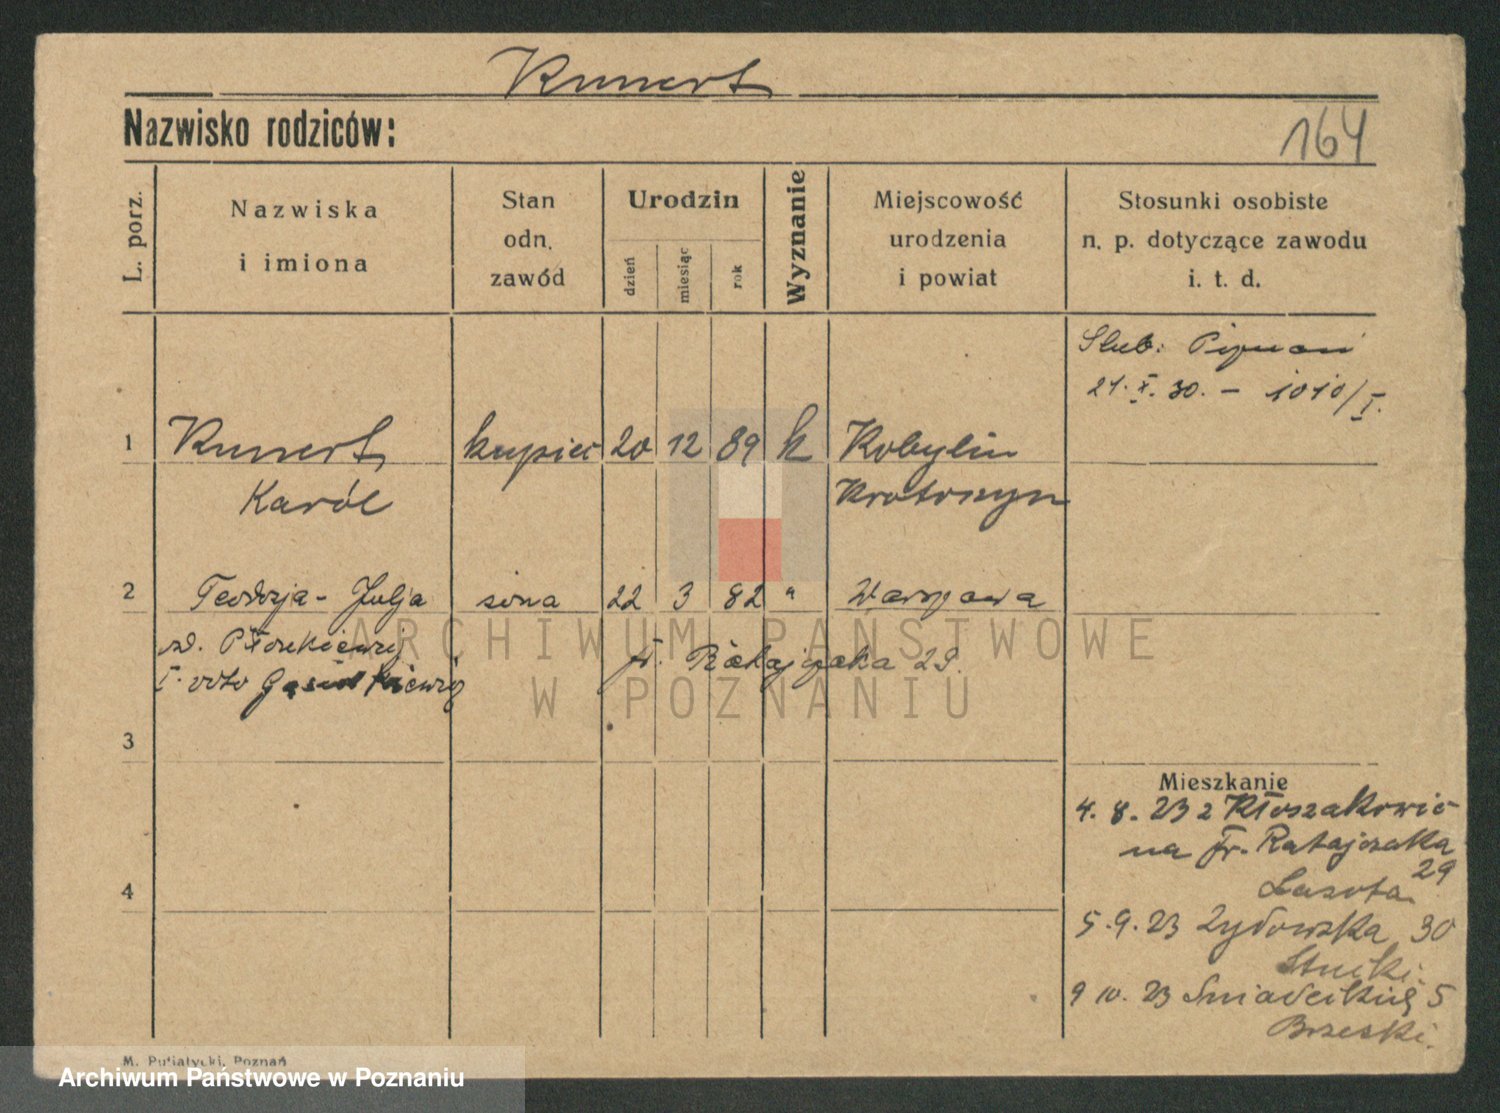 Kunert
Nazwisko rodziców:
164
L. porz.
Nazwiska
i imiona
Stan
odn.
zawód
Urodzin
dzień
miesiąc
rok
Wyznanie
Miejscowość
urodzenia
i powiat
Stosunki osobiste
n. p. dotyczące zawodu
i. t. d.
Slub:
21. X. 30. - 1010/I.
1 Kunert kupiec 20 12 89 k Kobylin
Karól Krotoszyn
2 Teodozja - Julja żona 22 3 82 " Warszawa
I. voto
Fr. Ratajczaka 29.
ARCHIWUM PAŃSTWOWE
W POZNANIU
3
Mieszkanie
4. 8. 23 z Kłoszakowic
na Fr. Ratajczaka
29
Lasota
4
5. 9. 23 Żydowska 30
9 10. 23 Śniadeckich 5
Brzeski.
M. Putiatycki, Poznań
Archiwum Państwowe w Poznaniu